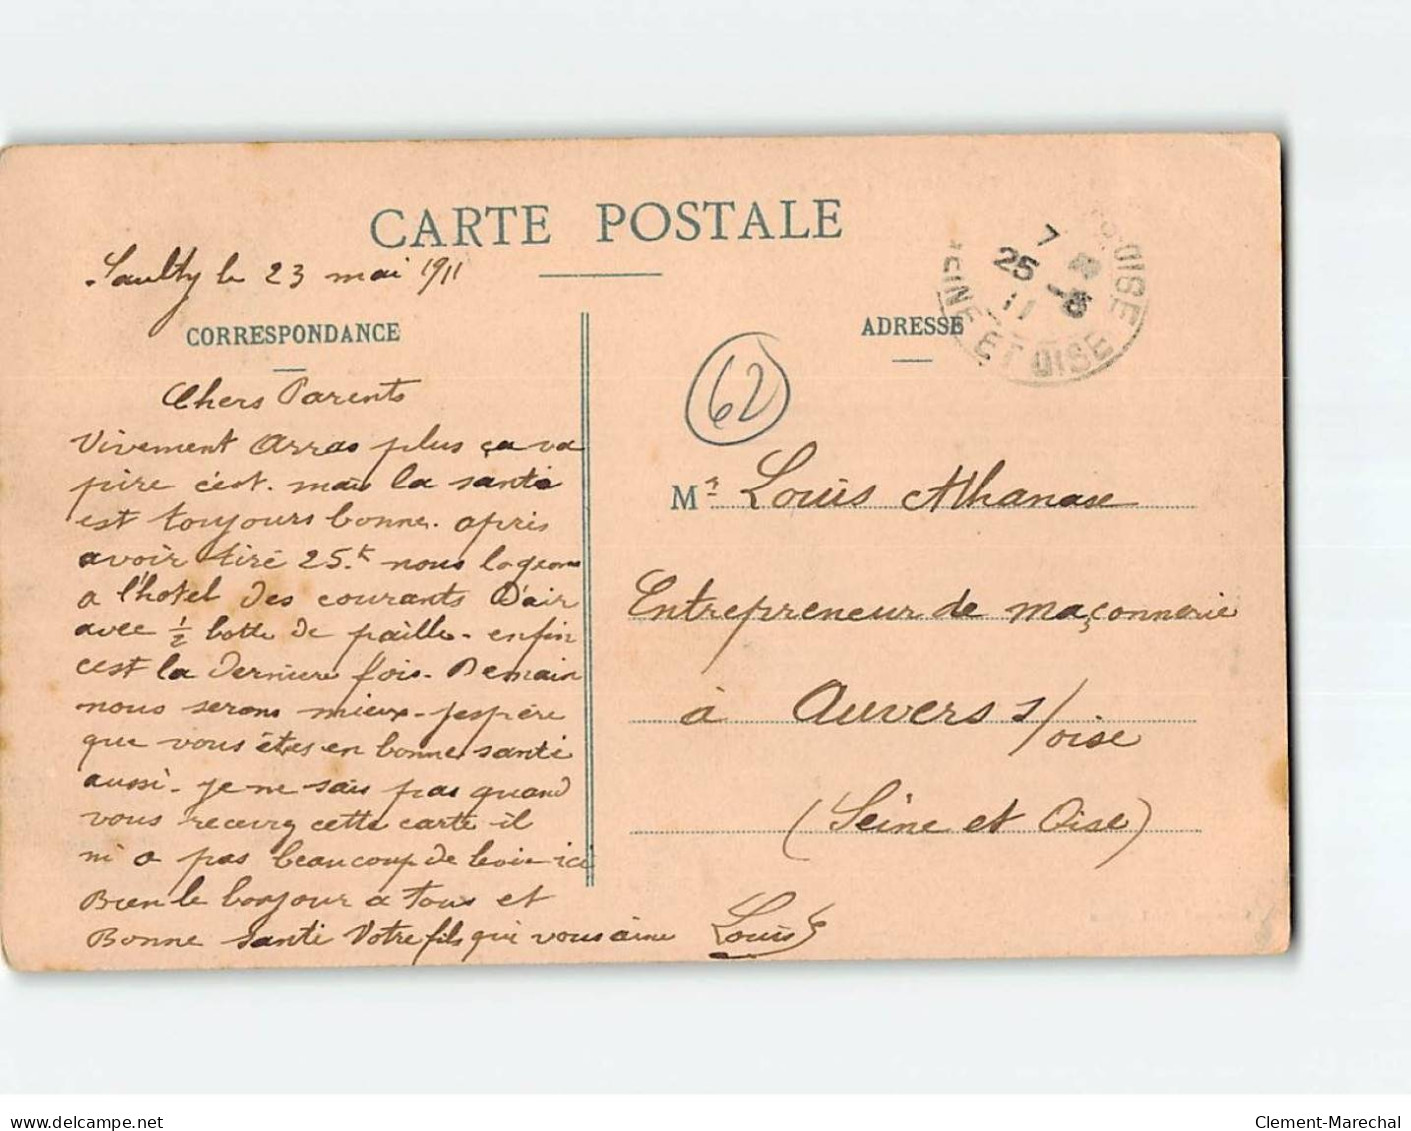 CARTE POSTALE
Saulty le 23 mai 1911
CORRESPONDANCE
Chers Parents
Vivement Arras plus ça va
pire c'est. mais la santé
est toujours bonne. après
avoir tiré 25.k nous logeons
a l'hotel des courants d'air
avec 1/2 botte de paille. enfin
c'est la derniere fois. Demain
nous serons mieux. j'espère
que vous êtes en bonne santé
aussi. je ne sais pas quand
vous recevrez cette carte il
ni a pas beaucoup de levée ici
Bien le bonjour a tous et
Bonne santé Votre fils qui vous aime Louis
ADRESSE
7
25 5
11
OISE
SEINE ET OISE
62
Mr Louis Athanase
Entrepreneur de maçonnerie
à Auvers s/oise
(Seine et Oise)
www.delcampe.net
Clement-Marechal